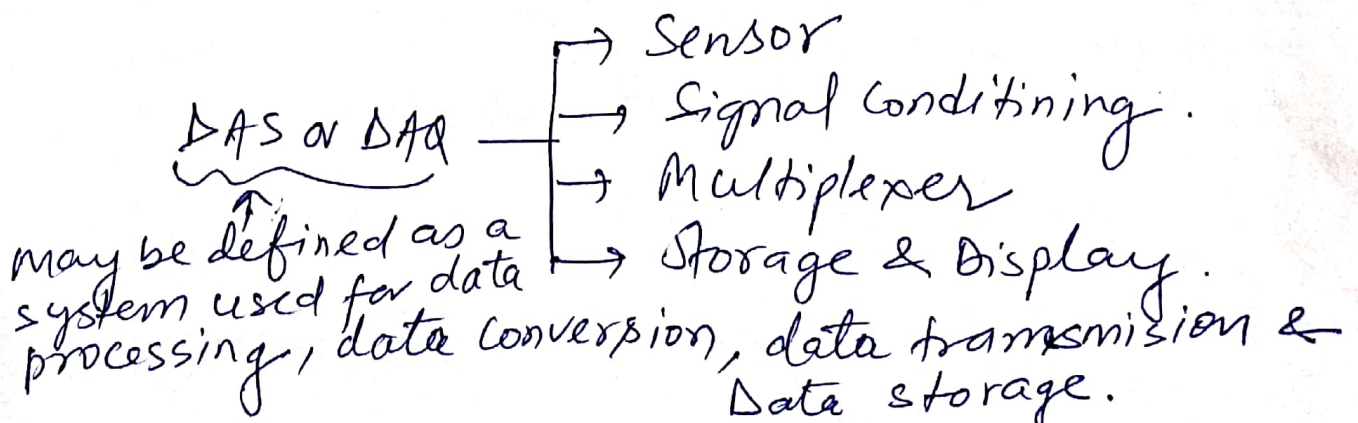 Sensor
Signal Conditining.
DAS or DAQ
Multiplexer
Storage & Display.
may be defined as a
system used for data
processing, data conversion, data transmision &
Data storage.